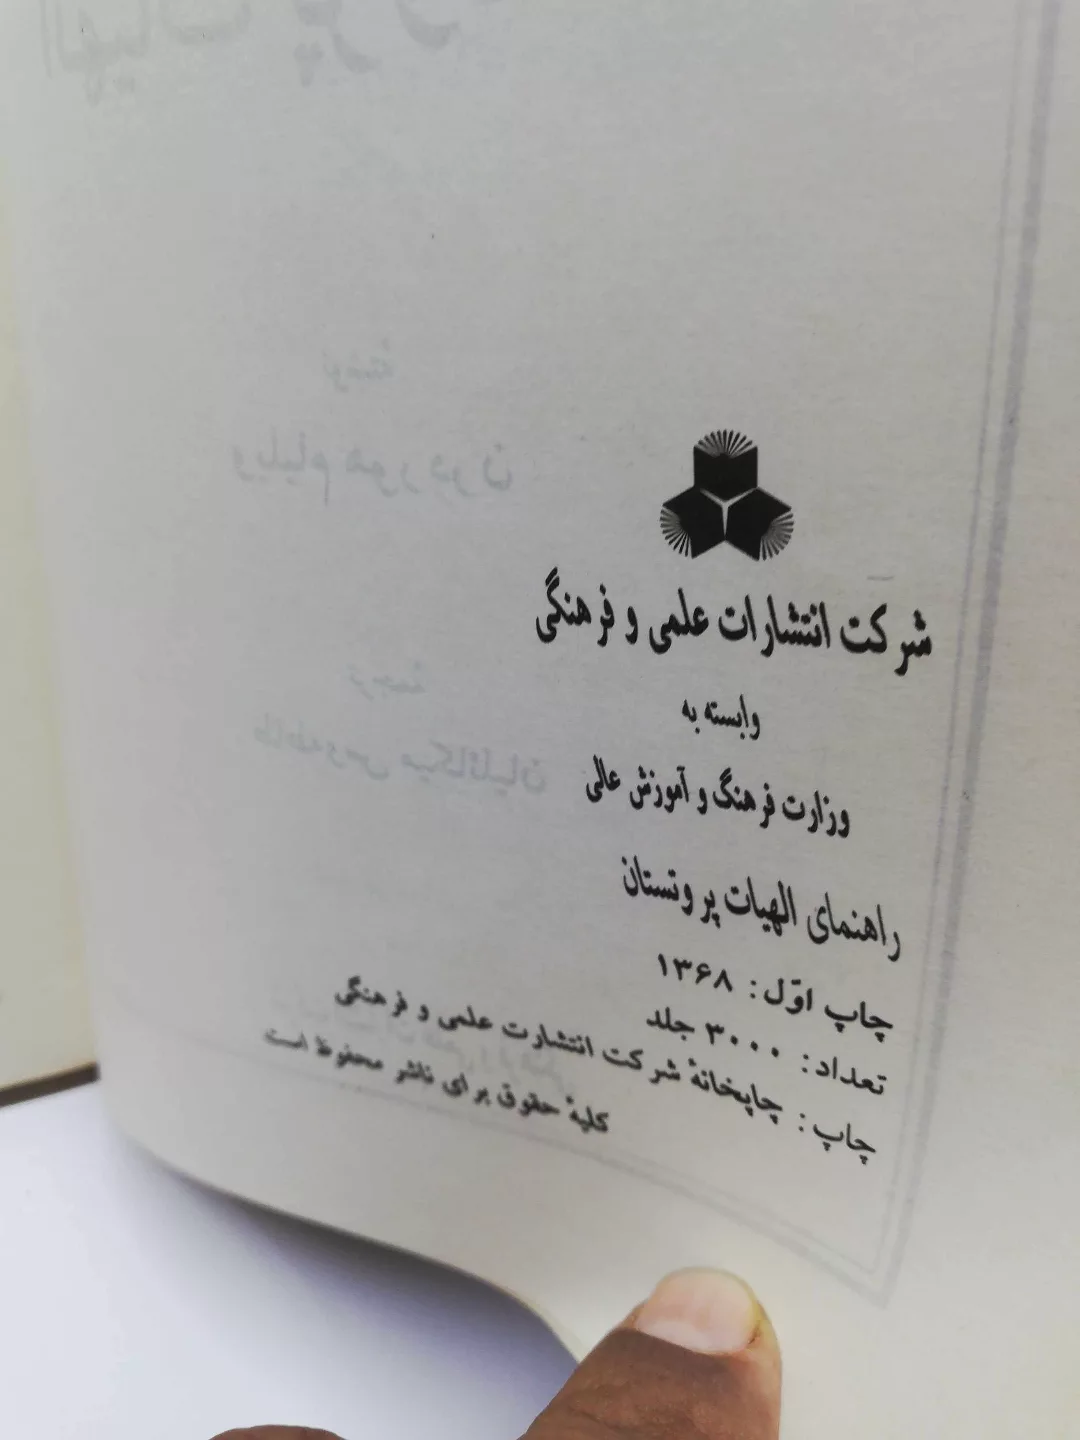 شرکت انتشارات علمی و فرهنگی
وابسته به
وزارت فرهنگ و آموزش عالی
راهنمای الهیات پروتستان
چاپ اوّل: ۱۳۶۸
تعداد: ۳۰۰۰ جلد
چاپ: چاپخانهٔ شرکت انتشارت علمی و فرهنگی
کلیهٔ حقوق برای ناشر محفوظ است